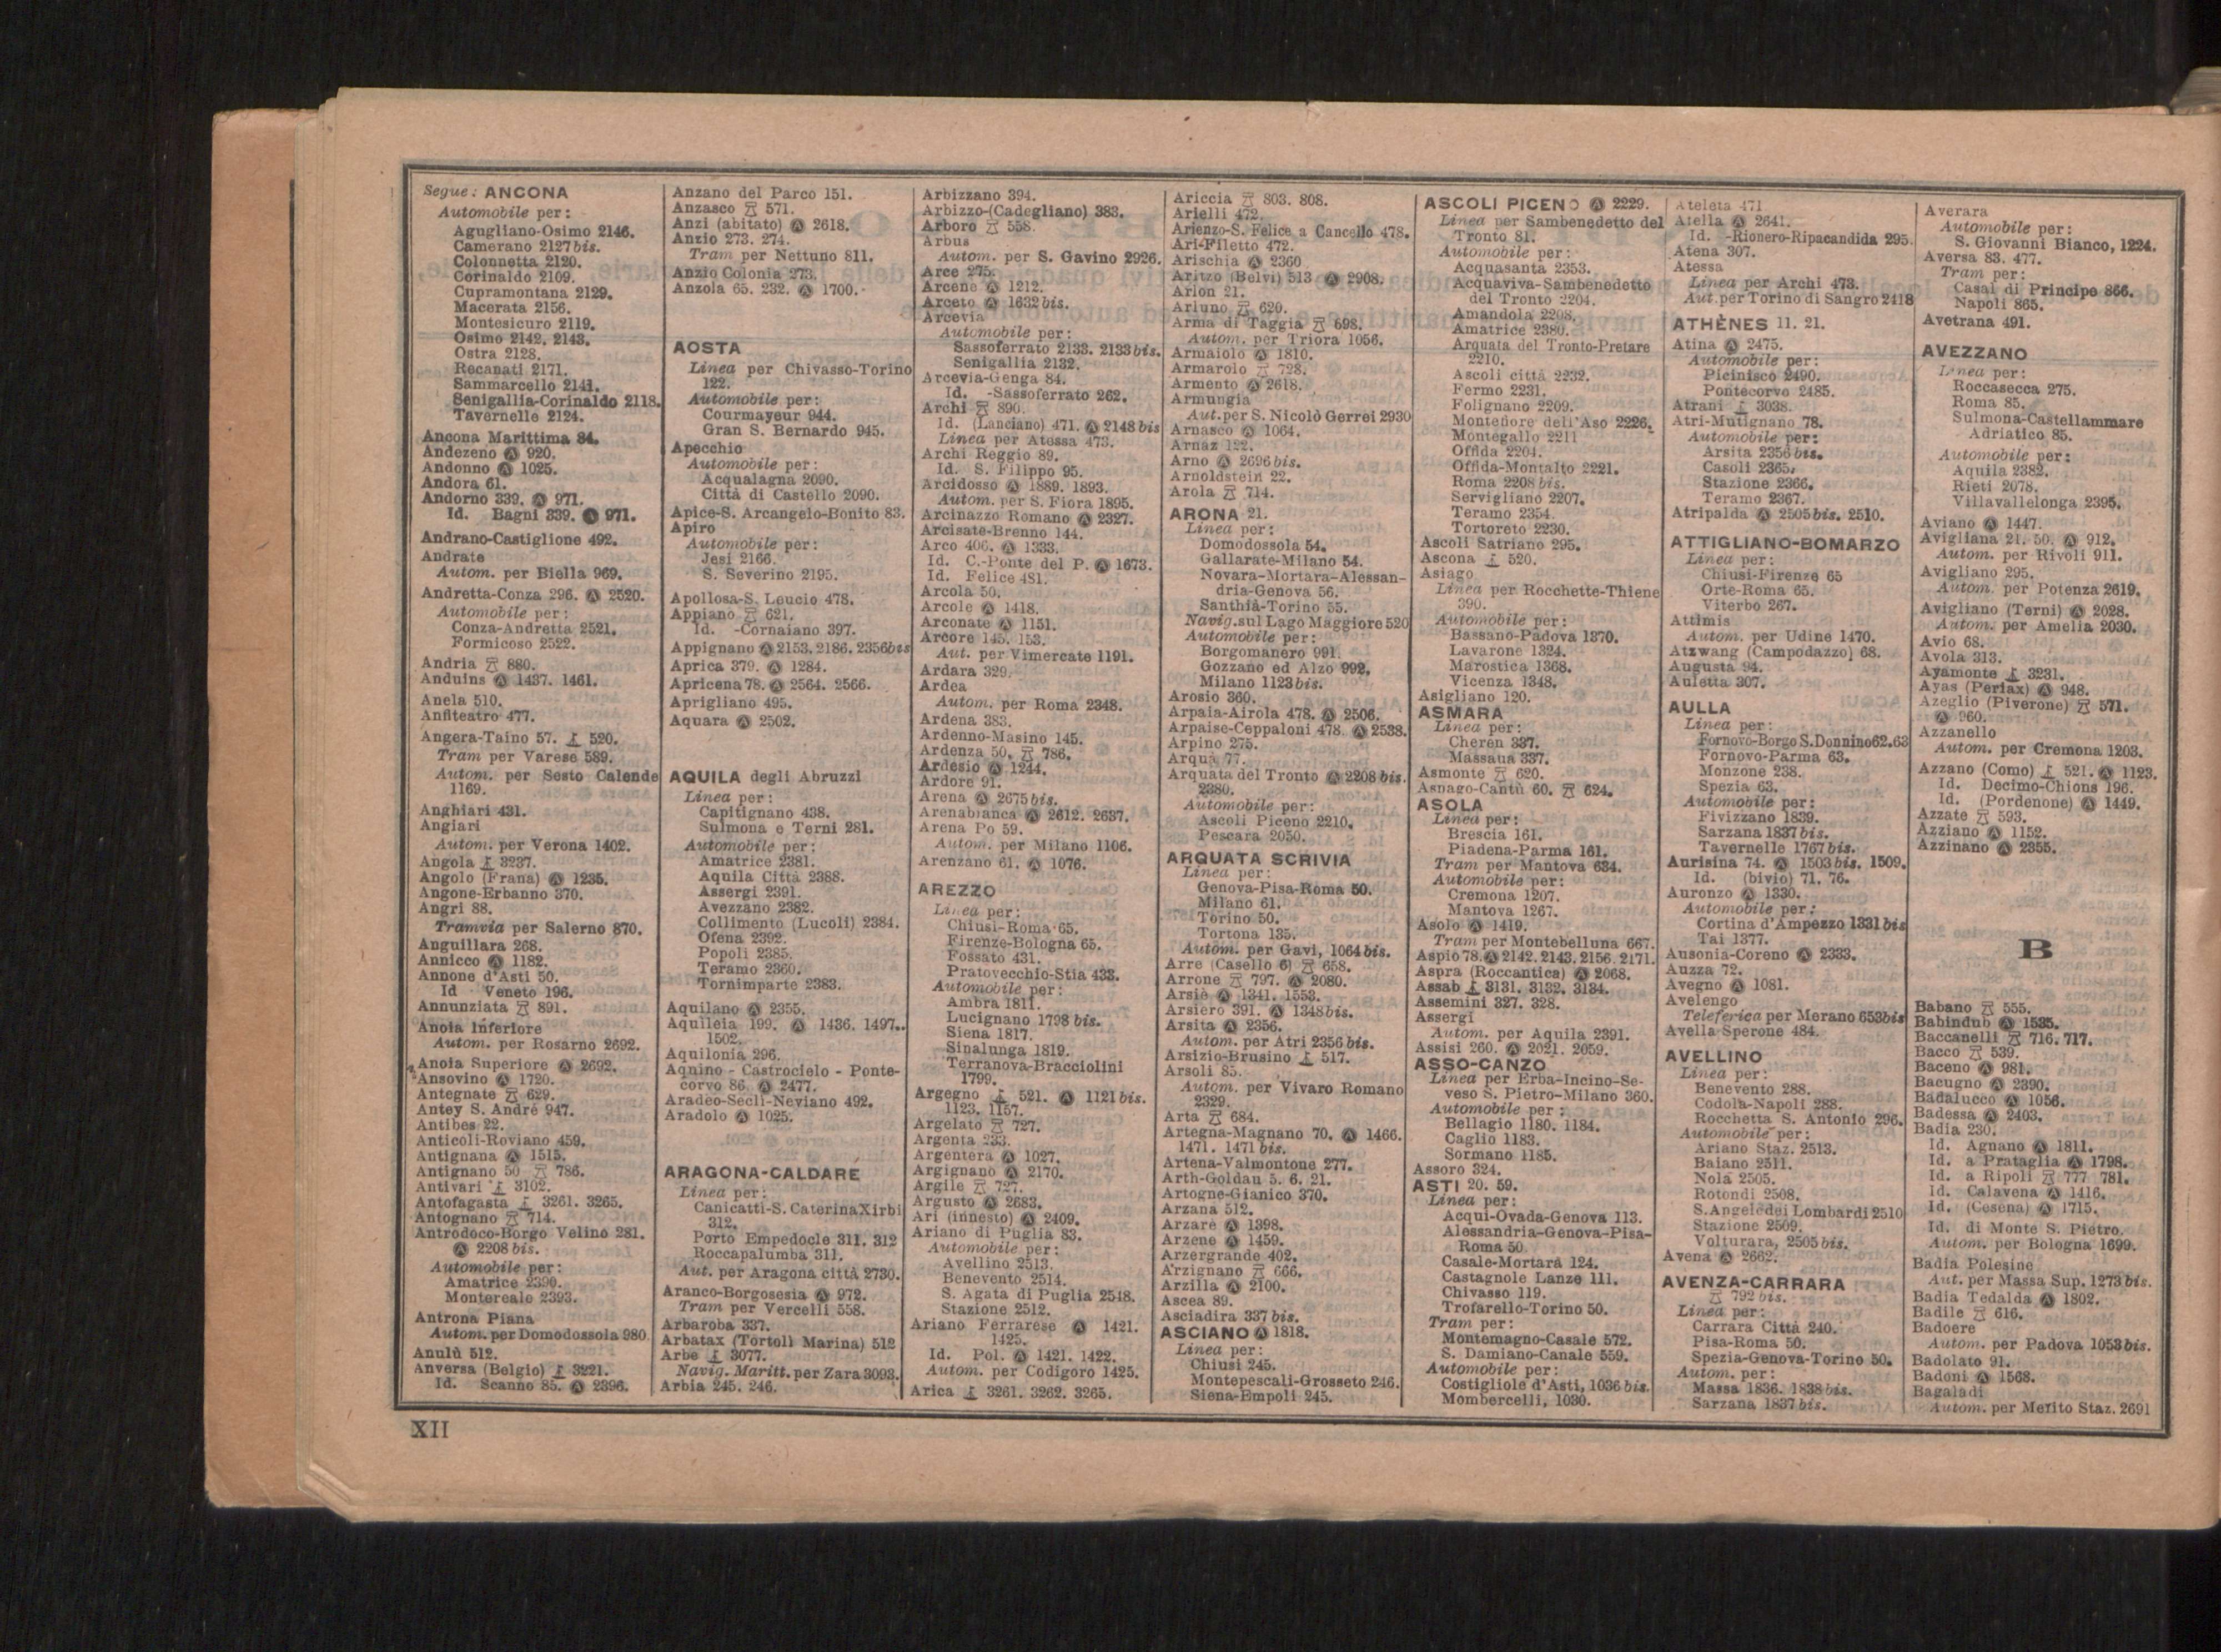 Segue: ANCONA
Automobile per:
Agugliano-Osimo 2146.
Camerano 2127 bis.
Colonnetta 2120.
Corinaldo 2109.
Cupramontana 2129.
Macerata 2156.
Montesicuro 2119.
Osimo 2142. 2143.
Ostra 2128.
Recanati 2171.
Sammarcello 2141.
Senigallia-Corinaldo 2118.
Tavernelle 2124.
Ancona Marittima 84.
Andezeno Ⓐ 920.
Andonno Ⓐ 1025.
Andora 61.
Andorno 339. Ⓐ 971.
Id. Bagni 339. Ⓐ 971.
Andrano-Castiglione 492.
Andrate
Autom. per Biella 969.
Andretta-Conza 296. Ⓐ 2520.
Automobile per:
Conza-Andretta 2521.
Formicoso 2522.
Andria 880.
Anduins Ⓐ 1437. 1461.
Anela 510.
Anfiteatro 477.
Angera-Taino 57. 520.
Tram per Varese 589.
Autom. per Sesto Calende
1169.
Anghiari 431.
Angiari
Autom. per Verona 1402.
Angola 3237.
Angolo (Frana) Ⓐ 1235.
Angone-Erbanno 370.
Angri 88.
Tramvia per Salerno 870.
Anguillara 268.
Annicco Ⓐ 1182.
Annone d'Asti 50.
Id Veneto 196.
Annunziata 891.
Anoia Inferiore
Autom. per Rosarno 2692.
Anoia Superiore Ⓐ 2692.
Ansovino Ⓐ 1720.
Antegnate 629.
Antey S. André 947.
Antibes 22.
Anticoli-Roviano 459.
Antignana Ⓐ 1515.
Antignano 50 786.
Antivari 3102.
Antofagasta 3261. 3265.
Antognano 714.
Antrodoco-Borgo Velino 281.
Ⓐ 2208 bis.
Automobile per:
Amatrice 2390.
Montereale 2393.
Antrona Piana
Autom. per Domodossola 980.
Anulù 512.
Anversa (Belgio) 3221.
Id. Scanno 85. Ⓐ 2396.
Anzano del Parco 151.
Anzasco 571.
Anzi (abitato) Ⓐ 2618.
Anzio 273. 274.
Tram per Nettuno 811.
Anzio Colonia 273.
Anzola 65. 232. Ⓐ 1700.
AOSTA
Linea per Chivasso-Torino
122.
Automobile per:
Courmayeur 944.
Gran S. Bernardo 945.
Apecchio
Automobile per:
Acqualagna 2090.
Città di Castello 2090.
Apice-S. Arcangelo-Bonito 83.
Apiro
Automobile per:
Jesi 2166.
S. Severino 2195.
Apollosa-S. Leucio 478.
Appiano 621.
Id. -Cornaiano 397.
Appignano Ⓐ 2153. 2186. 2356 bis
Aprica 379. Ⓐ 1284.
Apricena 78. Ⓐ 2564. 2566.
Aprigliano 495.
Aquara Ⓐ 2502.
AQUILA degli Abruzzi
Linea per:
Capitignano 438.
Sulmona e Terni 281.
Automobile per:
Amatrice 2381.
Aquila Città 2388.
Assergi 2391.
Avezzano 2382.
Collimento (Lucoli) 2384.
Ofena 2392.
Popoli 2385.
Teramo 2360.
Tornimparte 2383.
Aquilano Ⓐ 2355.
Aquileia 199. Ⓐ 1436. 1497.
1502.
Aquilonia 296.
Aquino - Castrocielo - Ponte-
corvo 86 Ⓐ 2477.
Aradeo-Seclì-Neviano 492.
Aradolo Ⓐ 1025.
ARAGONA-CALDARE
Linea per:
Canicatti-S. Caterina Xirbi
312.
Porto Empedocle 311. 312
Roccapalumba 311.
Aut. per Aragona città 2730.
Aranco-Borgosesia Ⓐ 972.
Tram per Vercelli 558.
Arbaroba 337.
Arbatax (Tortolì Marina) 512
Arbe 3077.
Navig. Maritt. per Zara 3093.
Arbia 245. 246.
Arbizzano 394.
Arbizzo-(Cadegliano) 383.
Arboro 558.
Arbus
Autom. per S. Gavino 2926.
Arce 275.
Arcene Ⓐ 1212.
Arceto Ⓐ 1632 bis.
Arcevia
Automobile per:
Sassoferrato 2133. 2133 bis.
Senigallia 2132.
Arcevia-Genga 84.
Id. -Sassoferrato 262.
Archi 890.
Id. (Lanciano) 471. Ⓐ 2148 bis
Linea per Atessa 473.
Archi Reggio 89.
Id. S. Filippo 95.
Arcidosso Ⓐ 1889. 1893.
Autom. per S. Fiora 1895.
Arcinazzo Romano Ⓐ 2327.
Arcisate-Brenno 144.
Arco 406. Ⓐ 1333.
Id. C.-Ponte del P. Ⓐ 1673.
Id. Felice 481.
Arcola 50.
Arcole Ⓐ 1418.
Arconate Ⓐ 1151.
Arcore 145. 153.
Aut. per Vimercate 1191.
Ardara 329.
Ardea
Autom. per Roma 2348.
Ardena 383.
Ardenno-Masino 145.
Ardenza 50. 786.
Ardesio Ⓐ 1244.
Ardore 91.
Arena Ⓐ 2675 bis.
Arenabianca Ⓐ 2612. 2637.
Arena Po 59.
Autom. per Milano 1106.
Arenzano 61. Ⓐ 1076.
AREZZO
Linea per:
Chiusi-Roma 65.
Firenze-Bologna 65.
Fossato 431.
Pratovecchio-Stia 433.
Automobile per:
Ambra 1811.
Lucignano 1798 bis.
Siena 1817.
Sinalunga 1819.
Terranova-Bracciolini
1799.
Argegno 521. Ⓐ 1121 bis.
1123. 1157.
Argelato 727.
Argenta 233.
Argentera Ⓐ 1027.
Argignano Ⓐ 2170.
Argile 727.
Argusto Ⓐ 2683.
Ari (innesto) Ⓐ 2409.
Ariano di Puglia 83.
Automobile per:
Avellino 2513.
Benevento 2514.
S. Agata di Puglia 2518.
Stazione 2512.
Ariano Ferrarese Ⓐ 1421.
1425.
Id. Pol. Ⓐ 1421. 1422.
Autom. per Codigoro 1425.
Arica 3261. 3262. 3265.
Ariccia 803. 808.
Arielli 472.
Arienzo-S. Felice a Cancello 478.
Ari-Filetto 472.
Arischia Ⓐ 2360
Aritzo (Belvì) 513 Ⓐ 2908.
Arlon 21.
Arluno 620.
Arma di Taggia 698.
Autom. per Triora 1056.
Armaiolo Ⓐ 1810.
Armarolo 728.
Armento Ⓐ 2618.
Armungia
Aut. per S. Nicolò Gerrei 2930
Arnasco Ⓐ 1064.
Arnaz 122.
Arno Ⓐ 2696 bis.
Arnoldstein 22.
Arola 714.
ARONA 21.
Linea per:
Domodossola 54.
Gallarate-Milano 54.
Novara-Mortara-Alessan-
dria-Genova 56.
Santhià-Torino 55.
Navig. sul Lago Maggiore 520
Automobile per:
Borgomanero 991.
Gozzano ed Alzo 992.
Milano 1123 bis.
Arosio 360.
Arpaia-Airola 478. Ⓐ 2506.
Arpaise-Ceppaloni 478. Ⓐ 2538.
Arpino 275.
Arquà 77.
Arquata del Tronto Ⓐ 2208 bis.
2380.
Automobile per:
Ascoli Piceno 2210.
Pescara 2050.
ARQUATA SCRIVIA
Linea per:
Genova-Pisa-Roma 50.
Milano 61.
Torino 50.
Tortona 135.
Autom. per Gavi, 1064 bis.
Arre (Casello 6) 658.
Arrone 797. Ⓐ 2080.
Arsiè Ⓐ 1341. 1553.
Arsiero 391. Ⓐ 1348 bis.
Arsita Ⓐ 2356.
Autom. per Atri 2356 bis.
Arsizio-Brusino 517.
Arsoli 85.
Autom. per Vivaro Romano
2329.
Arta 684.
Artegna-Magnano 70. Ⓐ 1466.
1471. 1471 bis.
Artena-Valmontone 277.
Arth-Goldau 5. 6. 21.
Artogne-Gianico 370.
Arzana 512.
Arzarè Ⓐ 1398.
Arzene Ⓐ 1459.
Arzergrande 402.
Arzignano 666.
Arzilla Ⓐ 2100.
Ascea 89.
Asciadira 337 bis.
ASCIANO Ⓐ 1818.
Linea per:
Chiusi 245.
Montepescali-Grosseto 246.
Siena-Empoli 245.
ASCOLI PICENO Ⓐ 2229.
Linea per Sambenedetto del
Tronto 81.
Automobile per:
Acquasanta 2353.
Acquaviva-Sambenedetto
del Tronto 2204.
Amandola 2208.
Amatrice 2380.
Arquata del Tronto-Pretare
2210.
Ascoli città 2232.
Fermo 2231.
Folignano 2209.
Montefiore dell'Aso 2226.
Montegallo 2211
Offida 2204.
Offida-Montalto 2221.
Roma 2208 bis.
Servigliano 2207.
Teramo 2354.
Tortoreto 2230.
Ascoli Satriano 295.
Ascona 520.
Asiago
Linea per Rocchette-Thiene
390.
Automobile per:
Bassano-Padova 1370.
Lavarone 1324.
Marostica 1368.
Vicenza 1348.
Asigliano 120.
ASMARA
Linea per:
Cheren 337.
Massaua 337.
Asmonte 620.
Asnago-Cantù 60. 624.
ASOLA
Linea per:
Brescia 161.
Piadena-Parma 161.
Tram per Mantova 634.
Automobile per:
Cremona 1207.
Mantova 1267.
Asolo Ⓐ 1419.
Tram per Montebelluna 667.
Aspio 78. Ⓐ 2142. 2143. 2156. 2171.
Aspra (Roccantica) Ⓐ 2068.
Assab 3131. 3132. 3134.
Assemini 327. 328.
Assergi
Autom. per Aquila 2391.
Assisi 260. Ⓐ 2021. 2059.
ASSO-CANZO
Linea per Erba-Incino-Se-
veso S. Pietro-Milano 360.
Automobile per:
Bellagio 1180. 1184.
Caglio 1183.
Sormano 1185.
Assoro 324.
ASTI 20. 59.
Linea per:
Acqui-Ovada-Genova 113.
Alessandria-Genova-Pisa-
Roma 50
Casale-Mortara 124.
Castagnole Lanze 111.
Chivasso 119.
Trofarello-Torino 50.
Tram per:
Montemagno-Casale 572.
S. Damiano-Canale 559.
Automobile per:
Costigliole d'Asti, 1036 bis.
Mombercelli, 1030.
Ateleta 471
Atella Ⓐ 2641.
Id. -Rionero-Ripacandida 295.
Atena 307.
Atessa
Linea per Archi 473.
Aut. per Torino di Sangro 2418
ATHÈNES 11. 21.
Atina Ⓐ 2475.
Automobile per:
Picinisco 2490.
Pontecorvo 2485.
Atrani 3038.
Atri-Mutignano 78.
Automobile per:
Arsita 2356 bis.
Casoli 2365.
Stazione 2366.
Teramo 2367.
Atripalda Ⓐ 2505 bis. 2510.
ATTIGLIANO-BOMARZO
Linea per:
Chiusi-Firenze 65
Orte-Roma 65.
Viterbo 267.
Attimis
Autom. per Udine 1470.
Atzwang (Campodazzo) 68.
Augusta 94.
Auletta 307.
AULLA
Linea per:
Fornovo-Borgo S. Donnino 62. 63
Fornovo-Parma 63.
Monzone 238.
Spezia 63.
Automobile per:
Fivizzano 1839.
Sarzana 1837 bis.
Tavernelle 1767 bis.
Aurisina 74. Ⓐ 1503 bis. 1509.
Id. (bivio) 71. 76.
Auronzo Ⓐ 1330.
Automobile per:
Cortina d'Ampezzo 1331 bis
Tai 1377.
Ausonia-Coreno Ⓐ 2333.
Auzza 72.
Avegno Ⓐ 1081.
Avelengo
Teleferica per Merano 653 bis
Avella-Sperone 484.
AVELLINO
Linea per:
Benevento 288.
Codola-Napoli 288.
Rocchetta S. Antonio 296.
Automobile per:
Ariano Staz. 2513.
Baiano 2511.
Nola 2505.
Rotondi 2508.
S. Angelo dei Lombardi 2510
Stazione 2509.
Volturara, 2505 bis.
Avena Ⓐ 2662.
AVENZA-CARRARA
792 bis.
Linea per:
Carrara Città 240.
Pisa-Roma 50.
Spezia-Genova-Torino 50.
Autom. per:
Massa 1836. 1838 bis.
Sarzana 1837 bis.
Averara
Automobile per:
S. Giovanni Bianco, 1224.
Aversa 83. 477.
Tram per:
Casal di Principe 866.
Napoli 865.
Avetrana 491.
AVEZZANO
Linea per:
Roccasecca 275.
Roma 85.
Sulmona-Castellammare
Adriatico 85.
Automobile per:
Aquila 2382.
Rieti 2078.
Villavallelonga 2395.
Aviano Ⓐ 1447.
Avigliana 21. 50. Ⓐ 912.
Autom. per Rivoli 911.
Avigliano 295.
Autom. per Potenza 2619.
Avigliano (Terni) Ⓐ 2028.
Autom. per Amelia 2030.
Avio 68.
Avola 313.
Ayamonte 3231.
Ayas (Periax) Ⓐ 948.
Azeglio (Piverone) 571.
Ⓐ 960.
Azzanello
Autom. per Cremona 1203.
Azzano (Como) 521. Ⓐ 1123.
Id. Decimo-Chions 196.
Id. (Pordenone) Ⓐ 1449.
Azzate 593.
Azziano Ⓐ 1152.
Azzinano Ⓐ 2355.
B
Babano 555.
Babindub Ⓐ 1535.
Baccanelli 716. 717.
Bacco 539.
Baceno Ⓐ 981.
Bacugno Ⓐ 2390.
Badalucco Ⓐ 1056.
Badessa Ⓐ 2403.
Badia 230.
Id. Agnano Ⓐ 1811.
Id. a Prataglia Ⓐ 1798.
Id. a Ripoli 777 781.
Id. Calavena Ⓐ 1416.
Id. (Cesena) Ⓐ 1715.
Id. di Monte S. Pietro.
Autom. per Bologna 1699.
Badia Polesine
Aut. per Massa Sup. 1273 bis.
Badia Tedalda Ⓐ 1802.
Badile 616.
Badoere
Autom. per Padova 1053 bis.
Badolato 91.
Badoni Ⓐ 1568.
Bagaladi
Autom. per Melito Staz. 2691
XII